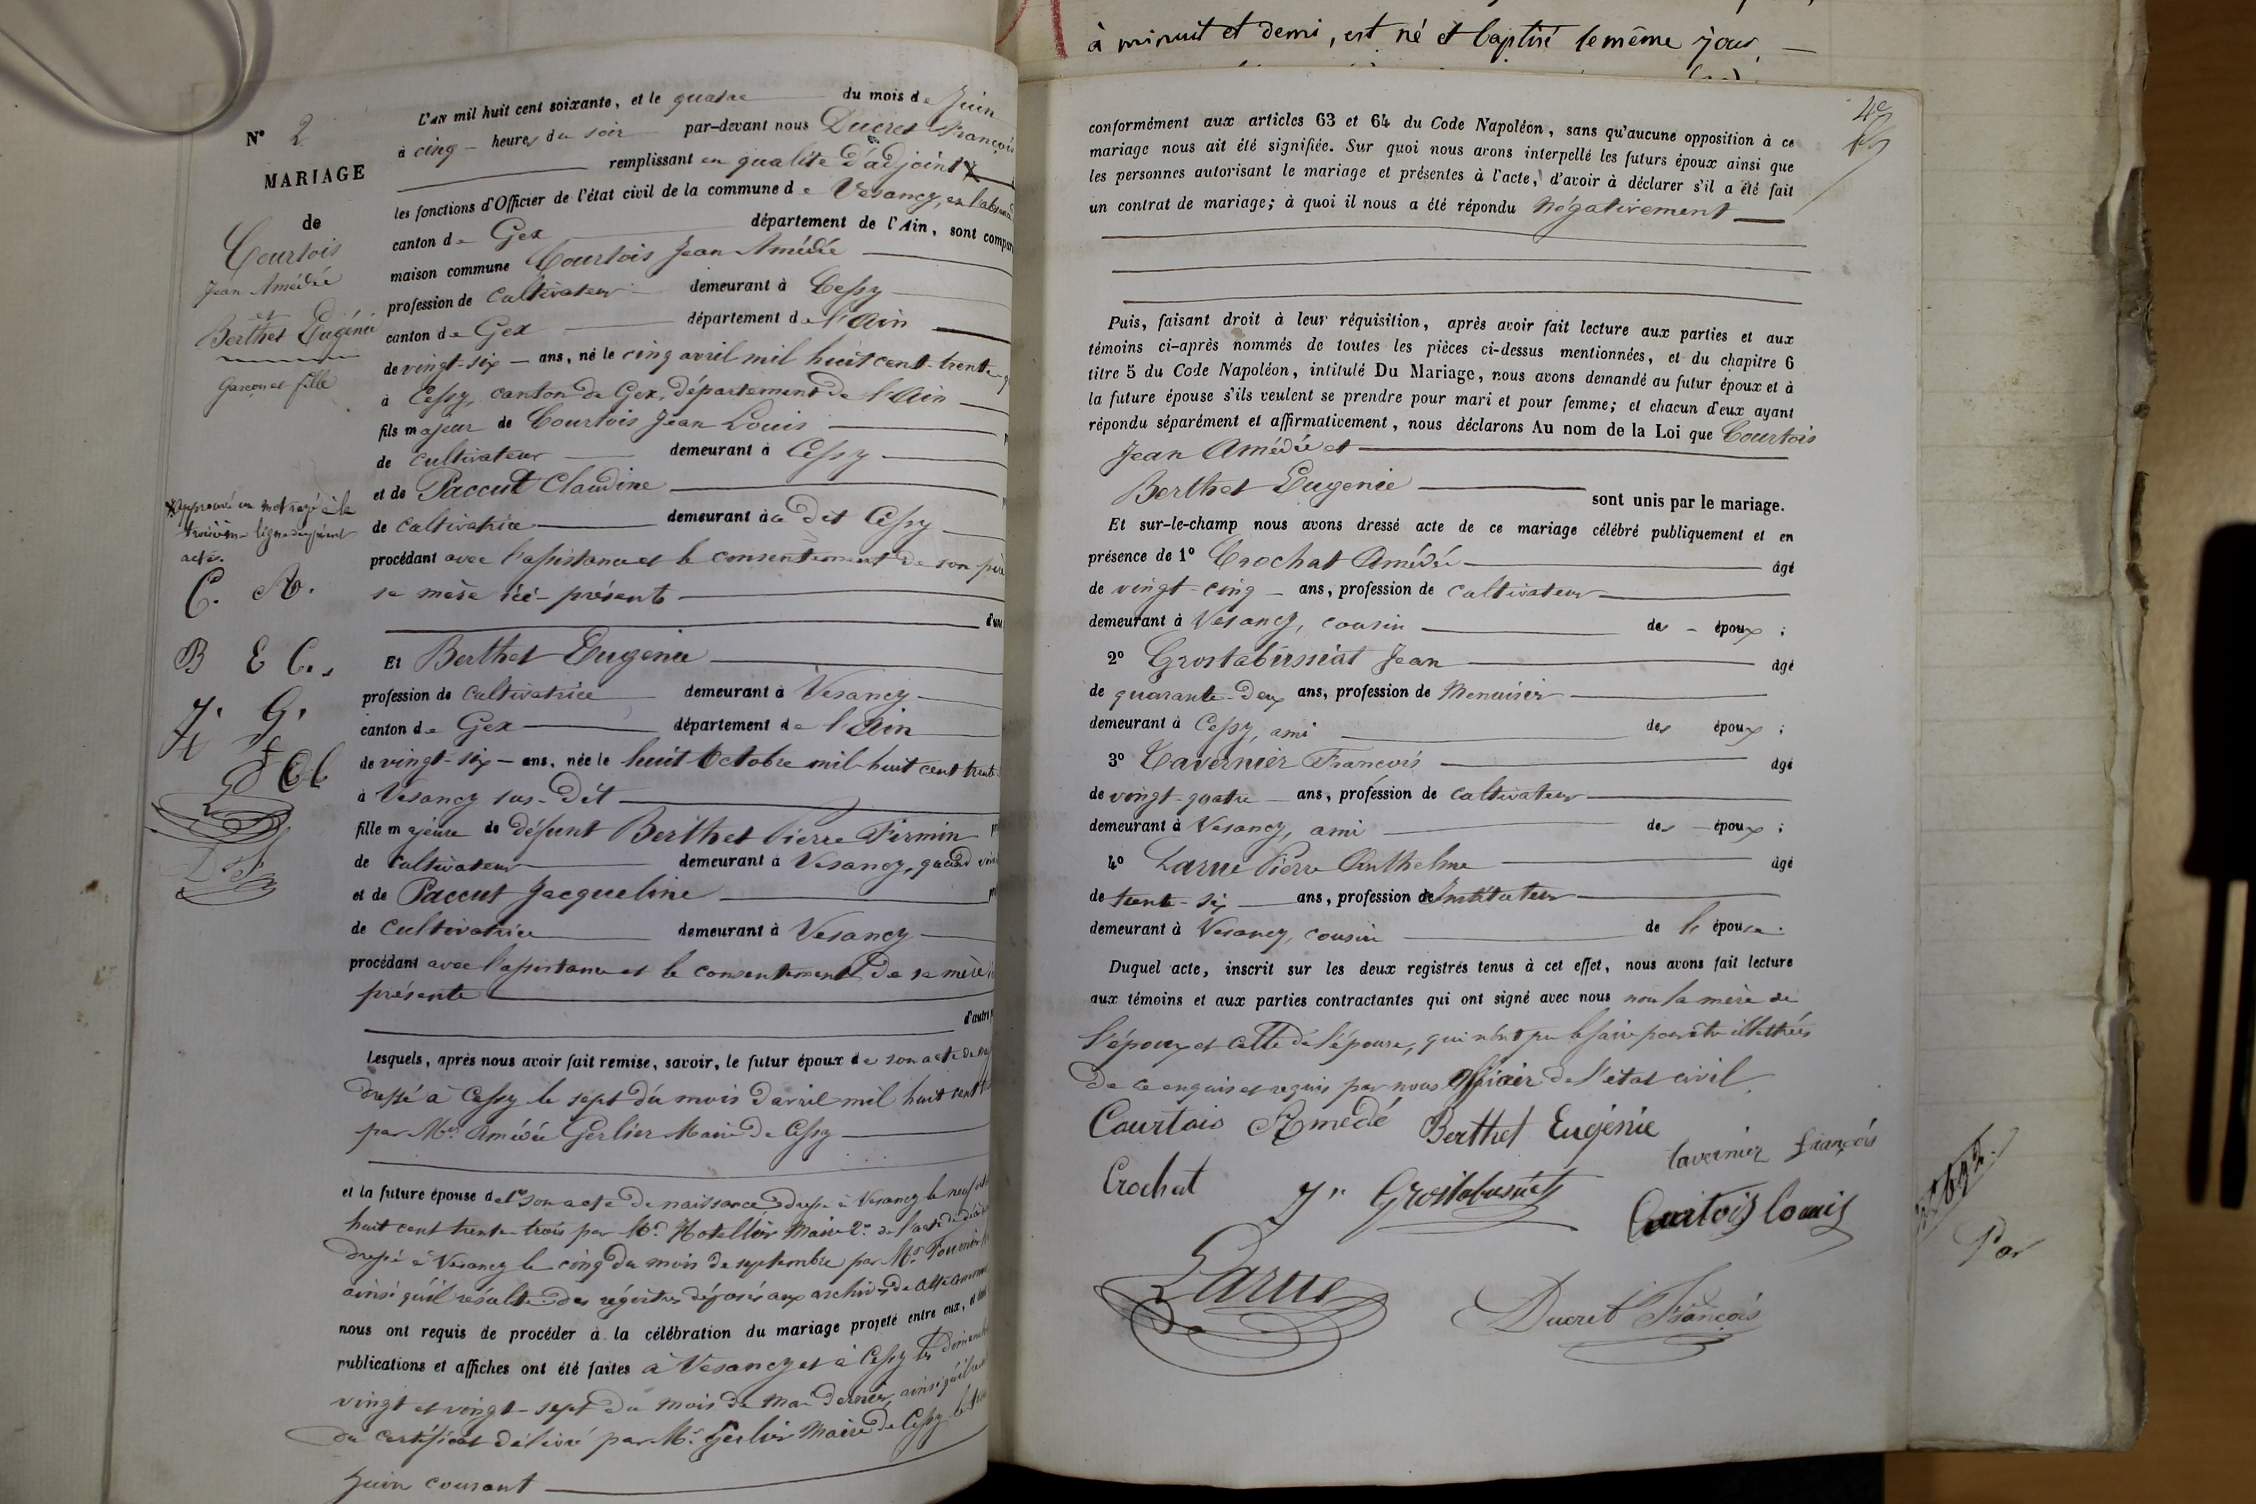 à minuit et demi, est né et baptisé le même jour
N° 2
MARIAGE
de
Courtois
Jean Amédée
et
Berthet Eugénie
Garçon et fille
X approuvé un mot rayé à la
troisième ligne du présent
acte.
C. A.
B E C.
J. G.
L'AN mil huit cent soixante, et le quatre du mois de Juin
à cinq heures du soir par-devant nous Ducret François
remplissant en qualité d'adjoint X
les fonctions d'Officier de l'état civil de la commune de Vesancy, en l'absence
canton de Gex département de l'Ain, sont comparu
maison commune Courtois Jean Amédée
profession de cultivateur demeurant à Cessy
canton de Gex département de l'Ain
de vingt-six ans, né le cinq avril mil huit cent trente
à Cessy, canton de Gex, département de l'Ain
fils majeur de Courtois Jean Louis
de cultivateur demeurant à Cessy
et de Paccut Claudine
de cultivatrice demeurant à ce dit Cessy
procédant avec l'assistance et le consentement de son père
sa mère ici présents
d'une
Et Berthet Eugénie
profession de cultivatrice demeurant à Vesancy
canton de Gex département de l'Ain
de vingt-six ans, née le huit Octobre mil huit cent trente
à Vesancy sus-dit
fille majeure de défunt Berthet Pierre Firmin
de cultivateur demeurant à Vesancy, quand
et de Paccut Jacqueline
de cultivatrice demeurant à Vesancy
procédant avec l'assistance et le consentement de sa mère
présente
d'autre
Lesquels, après nous avoir fait remise, savoir, le futur époux de son acte de
dressé à Cessy le sept du mois d'avril mil huit cent
par Mr. Amédée Gerlier Maire de Cessy
et la future épouse de 1° son acte de naissance dressé à Vesancy le neuf
huit cent trente-trois par Mr. Hotellier Maire 2° de l'acte de
dressé à Vesancy le cinq du mois de septembre par Mr. Fournier
ainsi qu'il résulte des régistres déposés aux archives de
nous ont requis de procéder à la célébration du mariage projeté entre eux, et
publications et affiches ont été faites à Vesancy et à Cessy les dimanches
vingt et vingt-sept du mois de mai dernier, ainsi qu'il
du certificat délivré par Mr. Gerlier Maire de Cessy le
Juin courant
conformément aux articles 63 et 64 du Code Napoléon, sans qu'aucune opposition à ce
mariage nous ait été signifiée. Sur quoi nous avons interpellé les futurs époux ainsi que
les personnes autorisant le mariage et présentes à l'acte, d'avoir à déclarer s'il a été fait
un contrat de mariage; à quoi il nous a été répondu négativement
Puis, faisant droit à leur réquisition, après avoir fait lecture aux parties et aux
témoins ci-après nommés de toutes les pièces ci-dessus mentionnées, et du chapitre 6
titre 5 du Code Napoléon, intitulé Du Mariage, nous avons demandé au futur époux et à
la future épouse s'ils veulent se prendre pour mari et pour femme; et chacun d'eux ayant
répondu séparément et affirmativement, nous déclarons Au nom de la Loi que Courtois
Jean Amédée et
Berthet Eugénie sont unis par le mariage.
Et sur-le-champ nous avons dressé acte de ce mariage célébré publiquement et en
présence de 1° Crochat Amédée âgé
de vingt-cinq ans, profession de cultivateur
demeurant à Vesancy, cousin des époux ;
2° Grostabussiat Jean âgé
de quarante-deux ans, profession de Menuisier
demeurant à Cessy, ami des époux ;
3° Tavernier François âgé
de vingt-quatre ans, profession de cultivateur
demeurant à Vesancy, ami des époux ;
4° Larue Pierre Anthelme âgé
de trente-six ans, profession de Instituteur
demeurant à Vesancy, cousin de l' épouse.
Duquel acte, inscrit sur les deux registres tenus à cet effet, nous avons fait lecture
aux témoins et aux parties contractantes qui ont signé avec nous non la mère de
l'époux et celle de l'épouse, qui n'ont pu le faire pour être illettrées
de ce enquis et requis par nous Officier de l'état civil.
Courtois Amédé Berthet Eugénie
tavernier françois
Crochat Jn Grostabussiat
Courtois Louis
Larue
Ducret François
Par